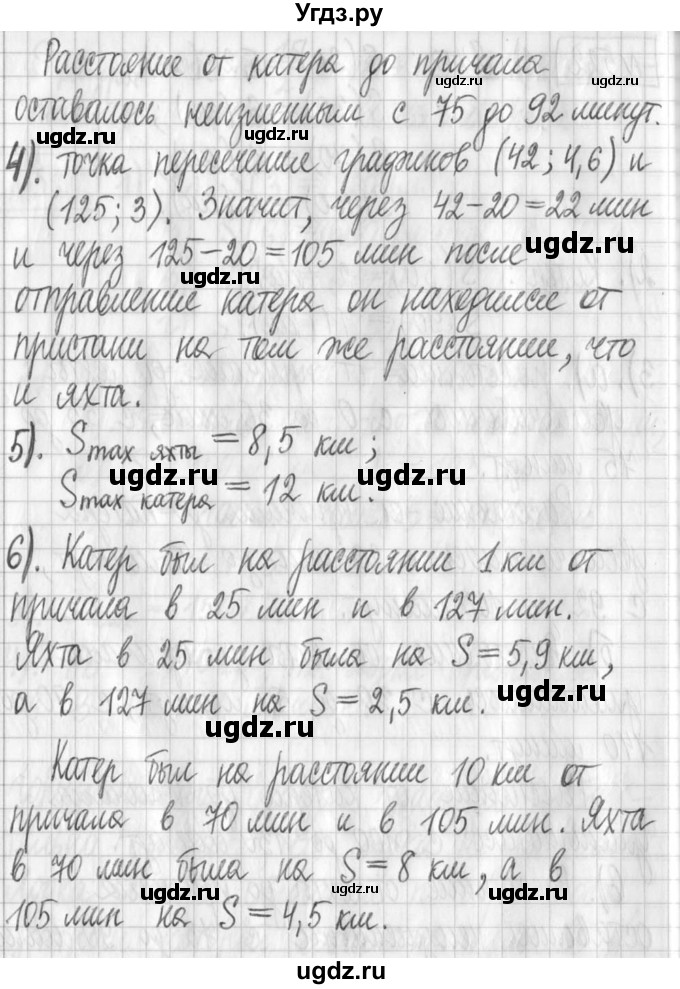 Угдз.ру
Расстояние от катера до причала
оставалось неизменным с 75 до 92 минут.
ugdz.ru ugdz.ru
4). точка пересечение графиков (42; 4,6) и
(125; 3). Значит, через 42-20=22 мин
и через 125-20=105 мин после
ugdz.ru ugdz.ru
отправление катера он находился от
пристани на том же расстоянии, что
и яхта.
5). Smax яхты = 8,5 км;
ugdz.ru ugdz.ru
Smax катера = 12 км.
6). Катер был на расстоянии 1 км от
ugdz.ru
причала в 25 мин и в 127 мин.
Яхта в 25 мин была на S=5,9 км,
а в 127 мин на S=2,5 км.
ugdz.ru
Катер был на расстоянии 10 км от
причала в 70 мин и в 105 мин. Яхта
в 70 мин была на S=8 км, а в
ugdz.ru ugdz.ru ugdz.ru
105 мин на S=4,5 км.
ugdz.ru